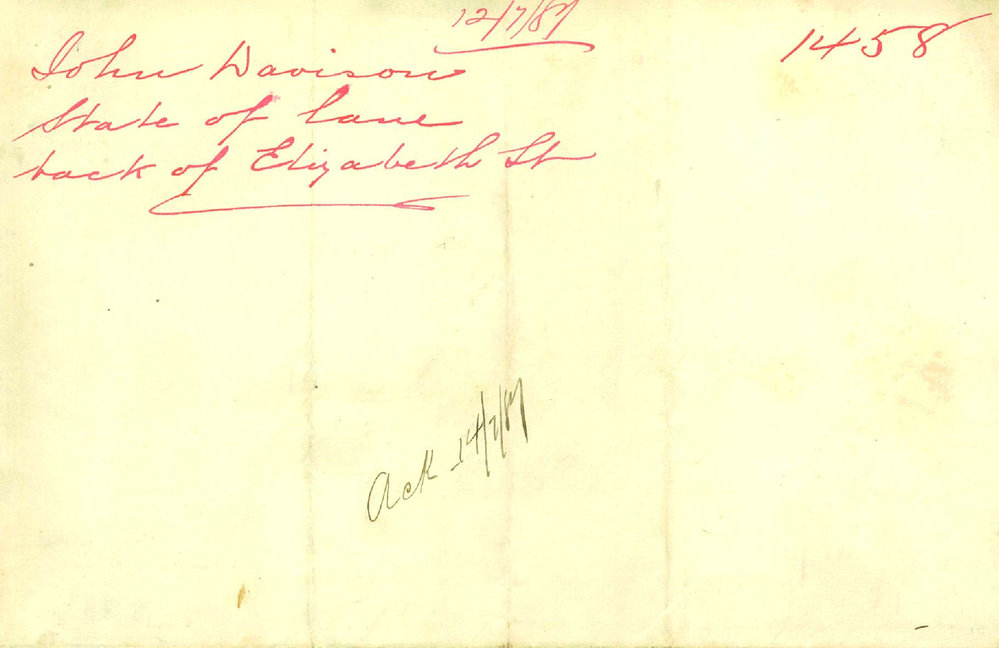 12/7/87
1458
John Davison
State of lane
back of Elizabeth St
Ack 14/7/87